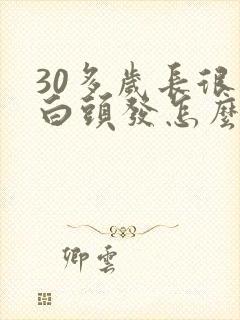 30多歲長很
白頭發怎麼
卿雲